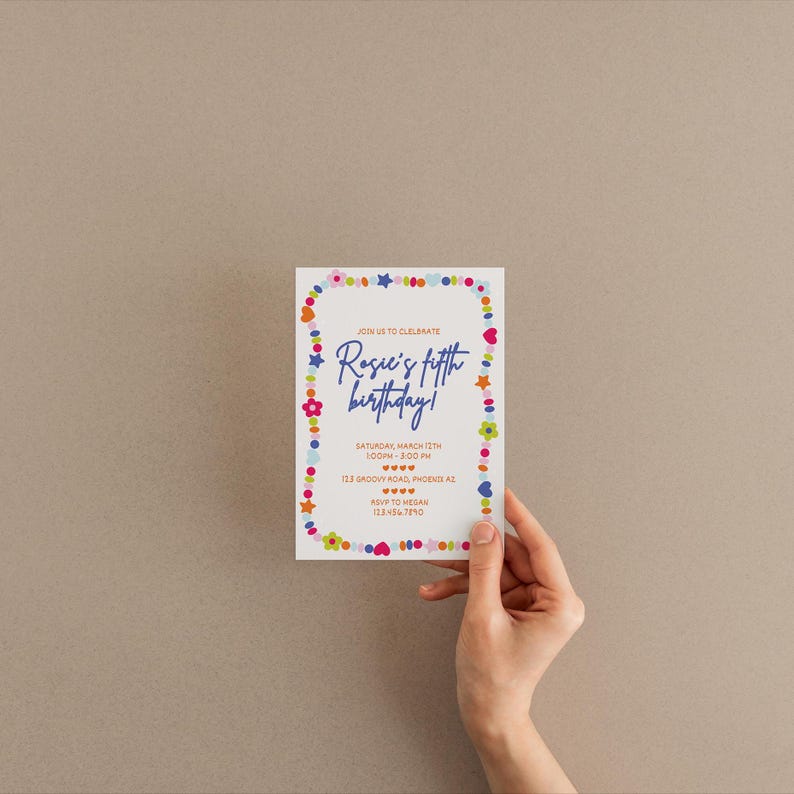 JOIN US TO CLELBRATE
Rosie's fifth
birthday!
SATURDAY, MARCH 12TH
1:00PM - 3:00 PM
123 GROOVY ROAD, PHOENIX AZ
RSVP TO MEGAN
123.456.7890